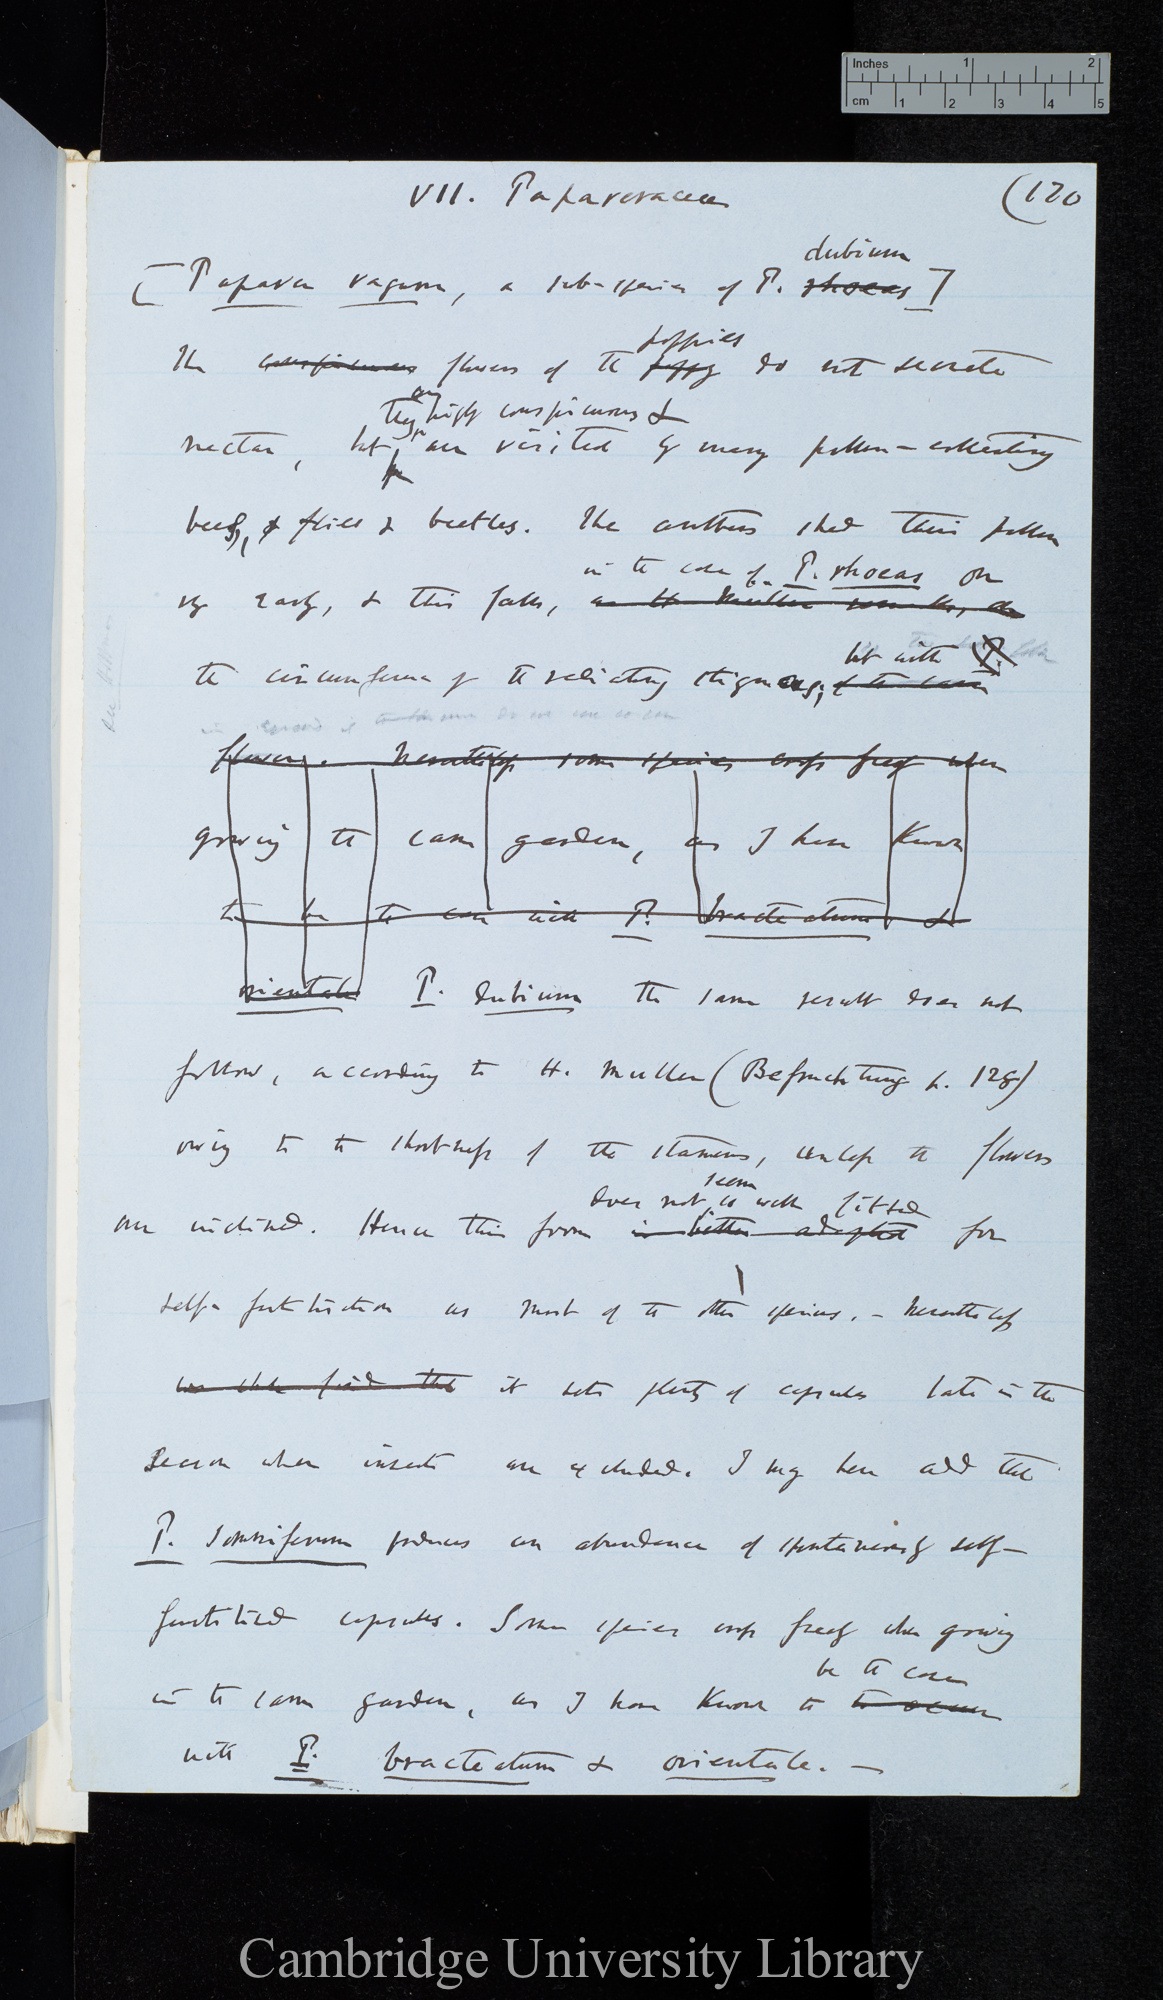 Inches 1 2
cm 1 2 3 4 5
VII. Papaveraceæ (120
dubium
[Papaver vagum, a sub-species of P. rhoeas]
poppies
The conspicuous flowers of the poppy do not secrete
they are highly conspicuous &
nectar, but are visited by many pollen-collecting
bees, & flies & beetles. The anthers shed their pollen
in the case of P. rhoeas on
very early, & this falls, as H. Müller remarks, on
but with P.
the circumference of the radiating stigmas, of the same
flower. Nevertheless some species cross freely when
growing the same garden, as I have known
to be the case with P. bracteatum &
orientale P. dubium the same result does not
follow, according to H. Muller (Befruchtung p. 128)
owing to the shortness of the stamens, unless the flowers
seem
does not so well fitted
are inclined. Hence this form is better adapted for
self-fertilisation as most of the other species. - Nevertheless
we shall find that it sets plenty of capsules late in the
season when insects are excluded. I may here add that
P. somniferum produces an abundance of spontaneously self-
fertilised capsules. Some species cross freely when growing
be the case
in the same garden, as I have known to to occur
with P. bracteatum & orientale. —
Cambridge University Library